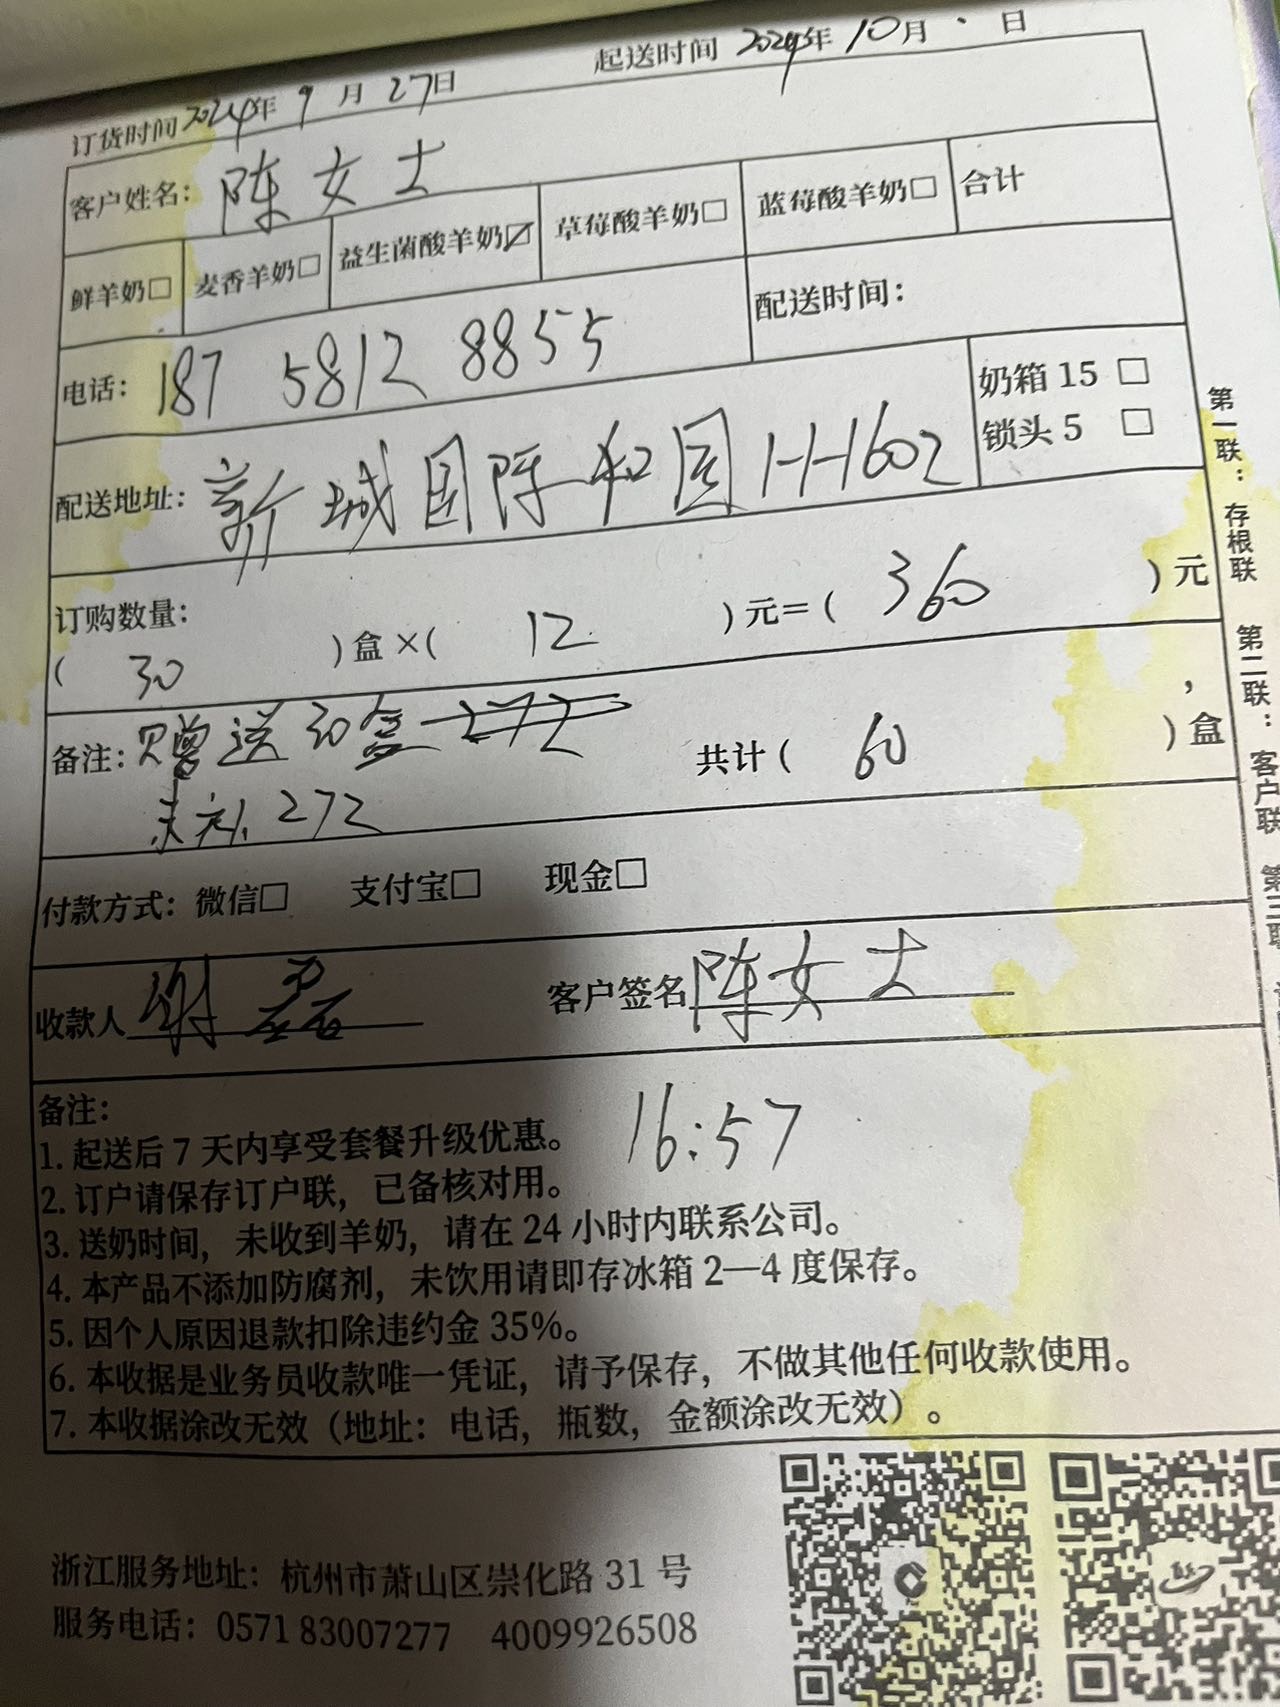 订货时间 2024年 9月 27日 起送时间 2024年 10月 · 日
客户姓名：陈女士
鲜羊奶□ 麦香羊奶□ 益生菌酸羊奶☑ 草莓酸羊奶□ 蓝莓酸羊奶□ 合计
电话：187 5812 8855 配送时间：
配送地址：新城国际和园1-1-1602 奶箱 15 □
锁头 5 □
订购数量：
( 30 ) 盒 ×( 12 ) 元＝( 360 ) 元
备注：赠送30盒 共计( 60 ) 盒
272
付款方式：微信□ 支付宝□ 现金□
收款人 谢磊 客户签名 陈女士
备注：
16:57
1. 起送后 7 天内享受套餐升级优惠。
2. 订户请保存订户联，已备核对用。
3. 送奶时间，未收到羊奶，请在 24 小时内联系公司。
4. 本产品不添加防腐剂，未饮用请即存冰箱 2—4 度保存。
5. 因个人原因退款扣除违约金 35%。
6. 本收据是业务员收款唯一凭证，请予保存，不做其他任何收款使用。
7. 本收据涂改无效（地址：电话，瓶数，金额涂改无效）。
浙江服务地址：杭州市萧山区崇化路 31 号
服务电话：0571 83007277 4009926508
第一联：存根联 第二联：客户联 第三联